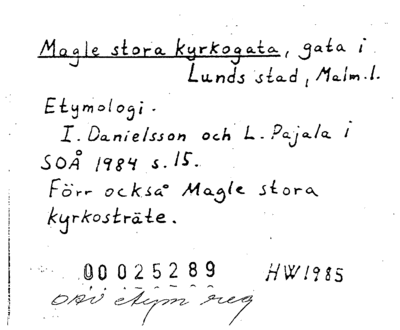 Magle stora kyrkogata, gata i
Lunds stad, Malm.l.
Etymologi.
I. Danielsson och L. Pajala i
SOÅ 1984 s. 15.
Förr också Magle stora
kyrkosträte.
00025289 HW1985
OAU etym reg